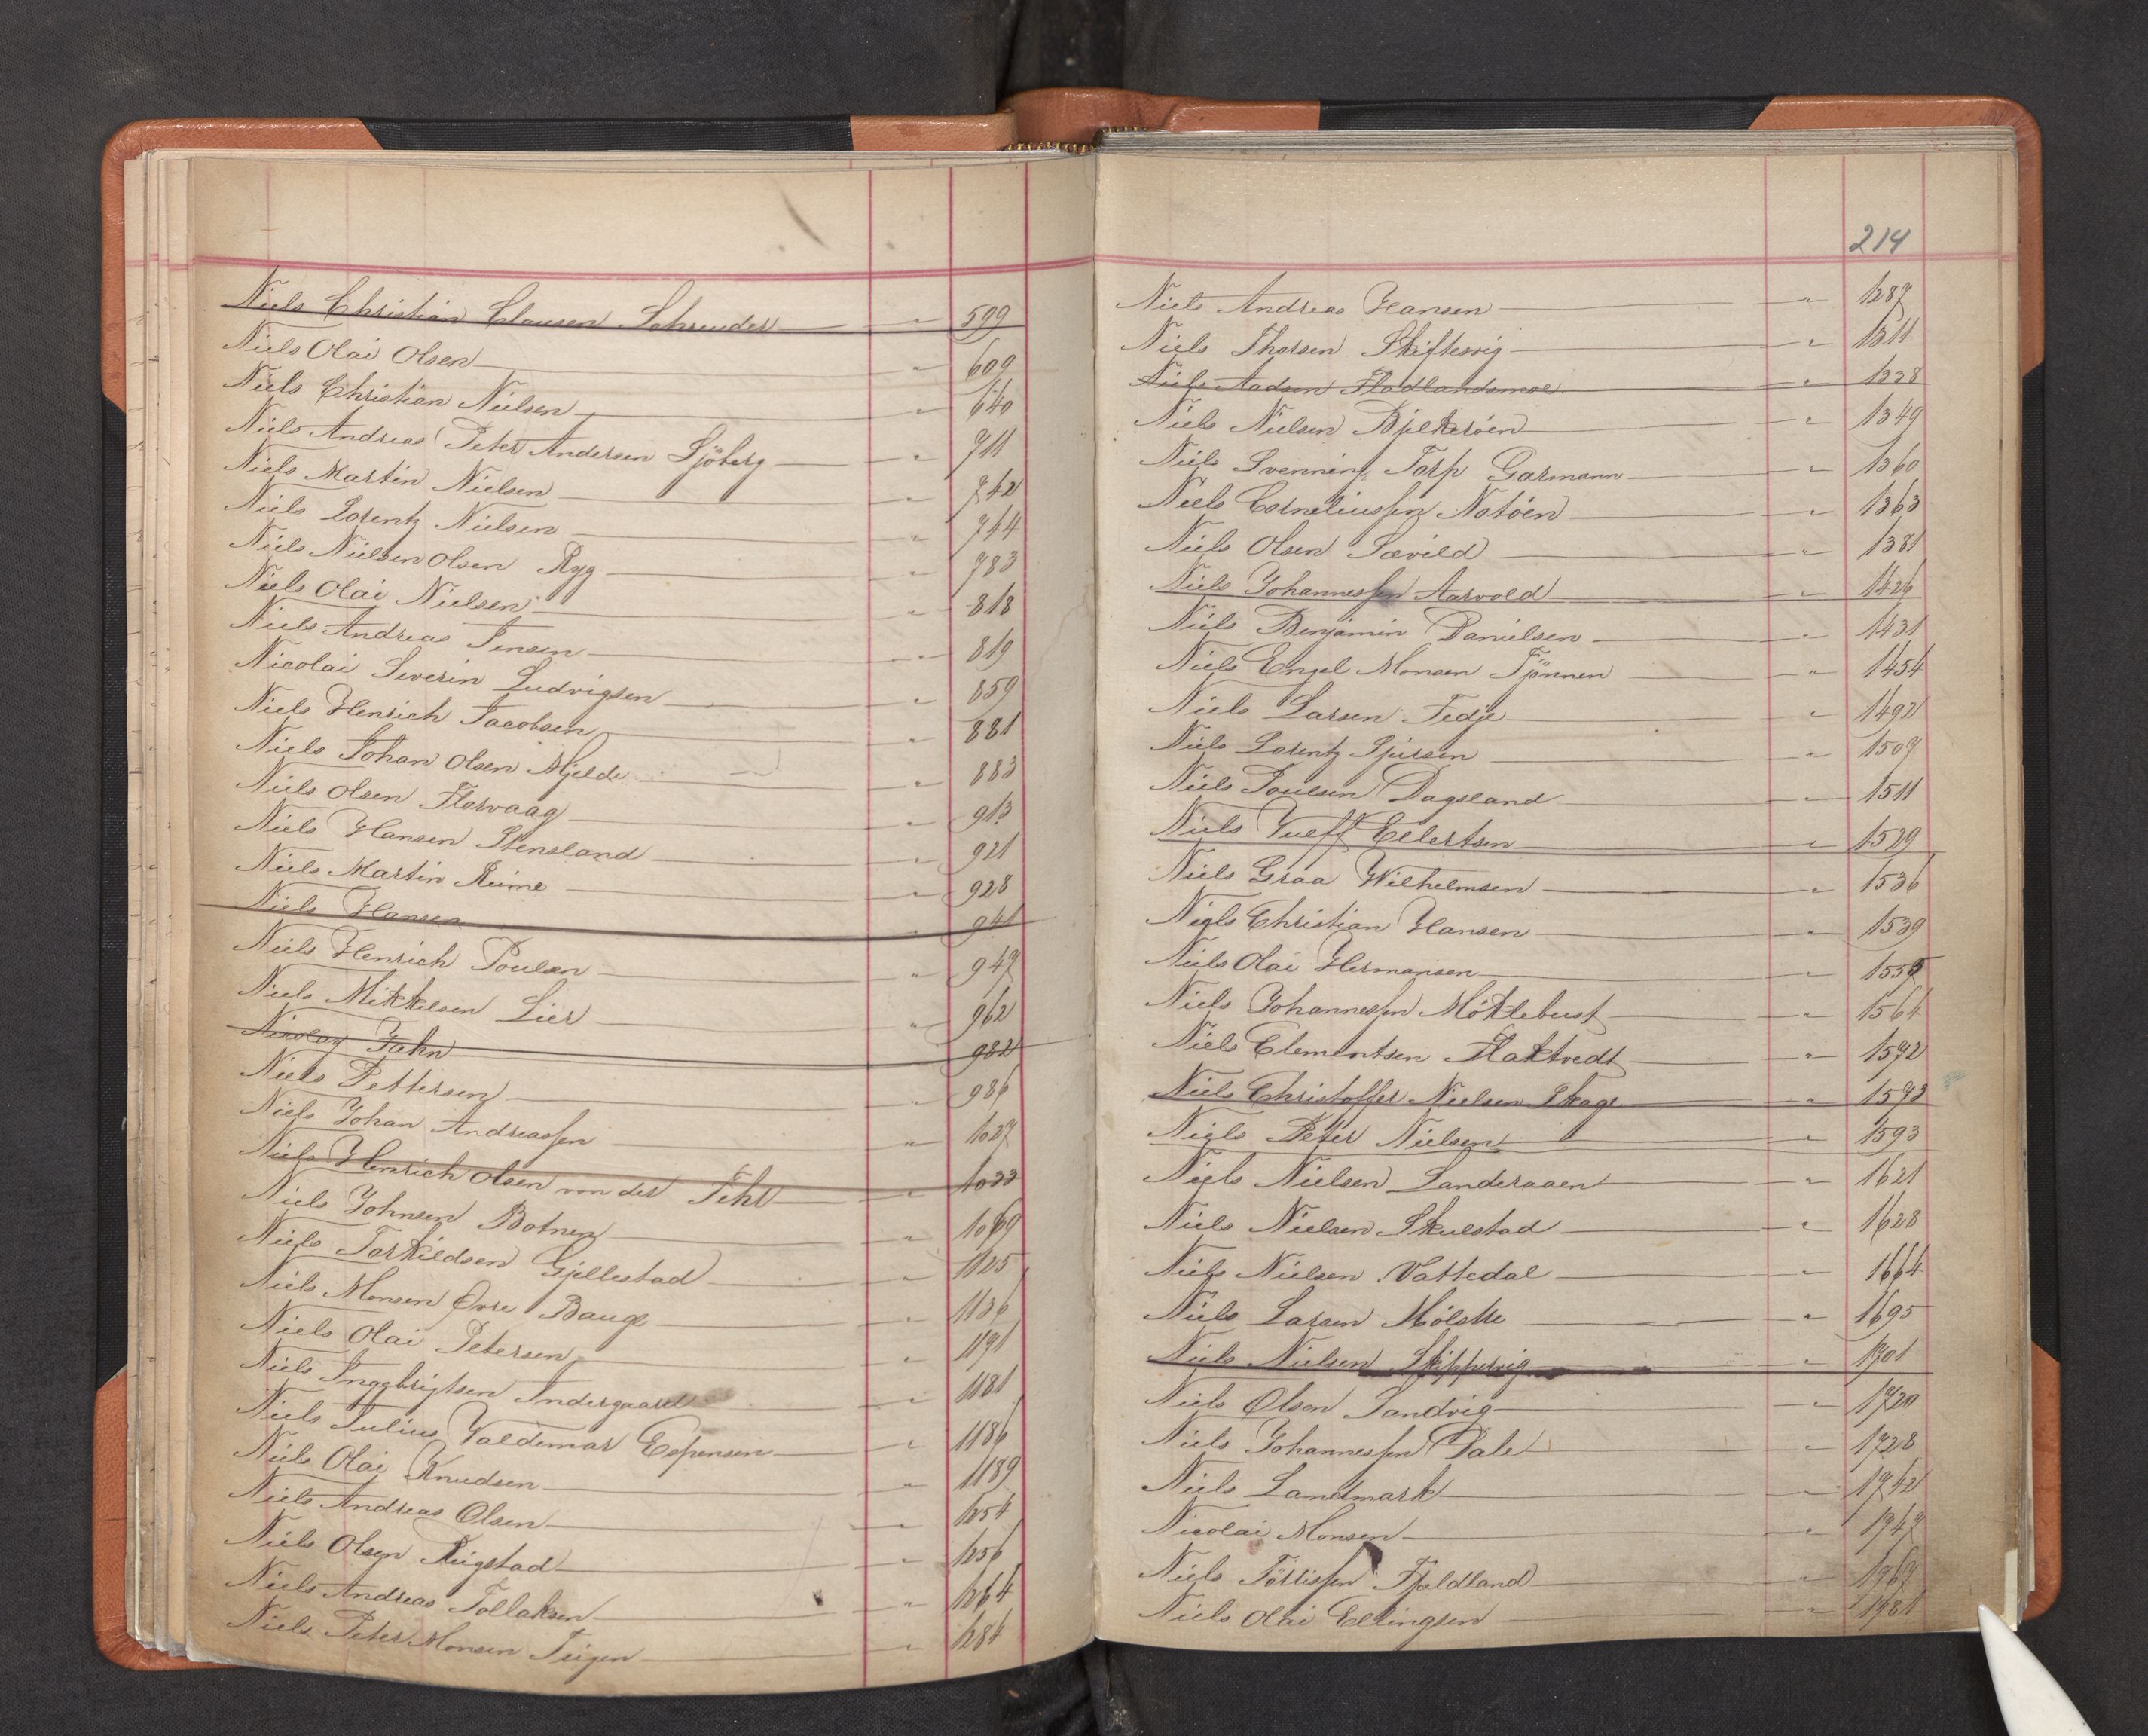 Niels Christian Clausen Schreuder " 599
Niels Olai Olsen " 609
Niels Christian Nielsen " 640
Niels Andreas Peter Andersen Sjöberg " 711
Niels Martin Nielsen " 742
Niels Lorentz Nielsen " 744
Niels Nielsen Olsen Ryg " 783
Niels Olai Nielsen " 818
Niels Andreas Jensen " 819
Nicolai Severin Ludvigsen " 859
Niels Henrich Jacobsen " 881
Niels Johan Olsen Mjelde " 883
Niels Olsen Florvaag " 913
Niels Hansen Stensland " 921
Niels Martin Reime " 928
Niels Hansen " 941
Niels Henrich Poulsen " 947
Niels Mikkelsen Lier " 962
Nicolay Jahn 982
Niels Pettersen " 986
Niels Johan Andreassen " 1027
Niels Henrich Olsen von der Fehr " 1033
Niels Johnsen Botnen " 1069
Niels Torkildsen Gjellestad " 1125
Niels Monsen Øvre Bauge " 1136
Niels Olai Petersen " 1171
Niels Inggbrigtsen Indergaard " 1181
Niels Julius Valdemar Espensen " 1186
Niels Olai Knudsen " 1189
Niels Andreas Olsen " 1254
Niels Olsen Reigstad " 1256
Niels Andreas Tollaksen " 1264
Niels Peter Monsen Teigen " 1284
214
Niels Andreas Hansen " 1287
Niels Thorsen Skiftesvig " 1311
Niels Aadsen Hadlandsmoe " 1338
Niels Nielsen Bjelkerøen " 1349
Niels Svenning Torp Garmann " 1360
Niels Corneliussen Notøen " 1363
Niels Olsen Sævild " 1381
Niels Johannessen Aarvold " 1426
Niels Benjamin Danielsen " 1431
Niels Engel Monsen Tjønnen " 1454
Niels Larsen Fedje " 1492
Niels Lorentz Sjursen " 1507
Niels Poulsen Dagsland " 1511
Niels Eilertsen " 1529
Niels Graa Wilhelmsen " 1536
Niels Christian Hansen " 1539
Niels Olai Hermansen " 1555
Niels Johannessen Möklebust " 1564
Niels Clementsen Flaktvedt " 1572
Niels Christoffer Nielsen Skage " 1573
Niels Peter Nielsen " 1593
Niels Nielsen Landeraaen " 1621
Niels Nielsen Skulstad " 1628
Niels Nielsen Vattedal " 1664
Niels Larsen Mølstre " 1695
Niels Nielsen Skippervig " 1701
Niels Olsen Sandvig " 1720
Niels Johannessen Dale " 1728
Niels Landmark " 1742
Nicolai Monsen " 1747
Niels Törrissen Fjeldland " 1767
Niels Olai Ellingsen " 1781